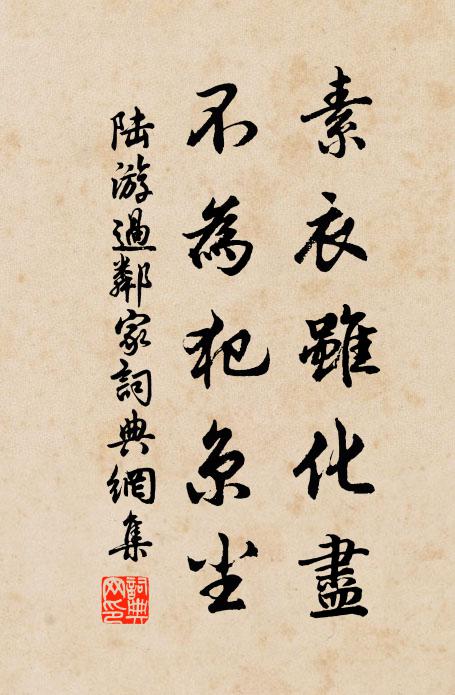 素衣雖化盡
不為犯京尘
陆游過鄰家詞典網集
詞典網印